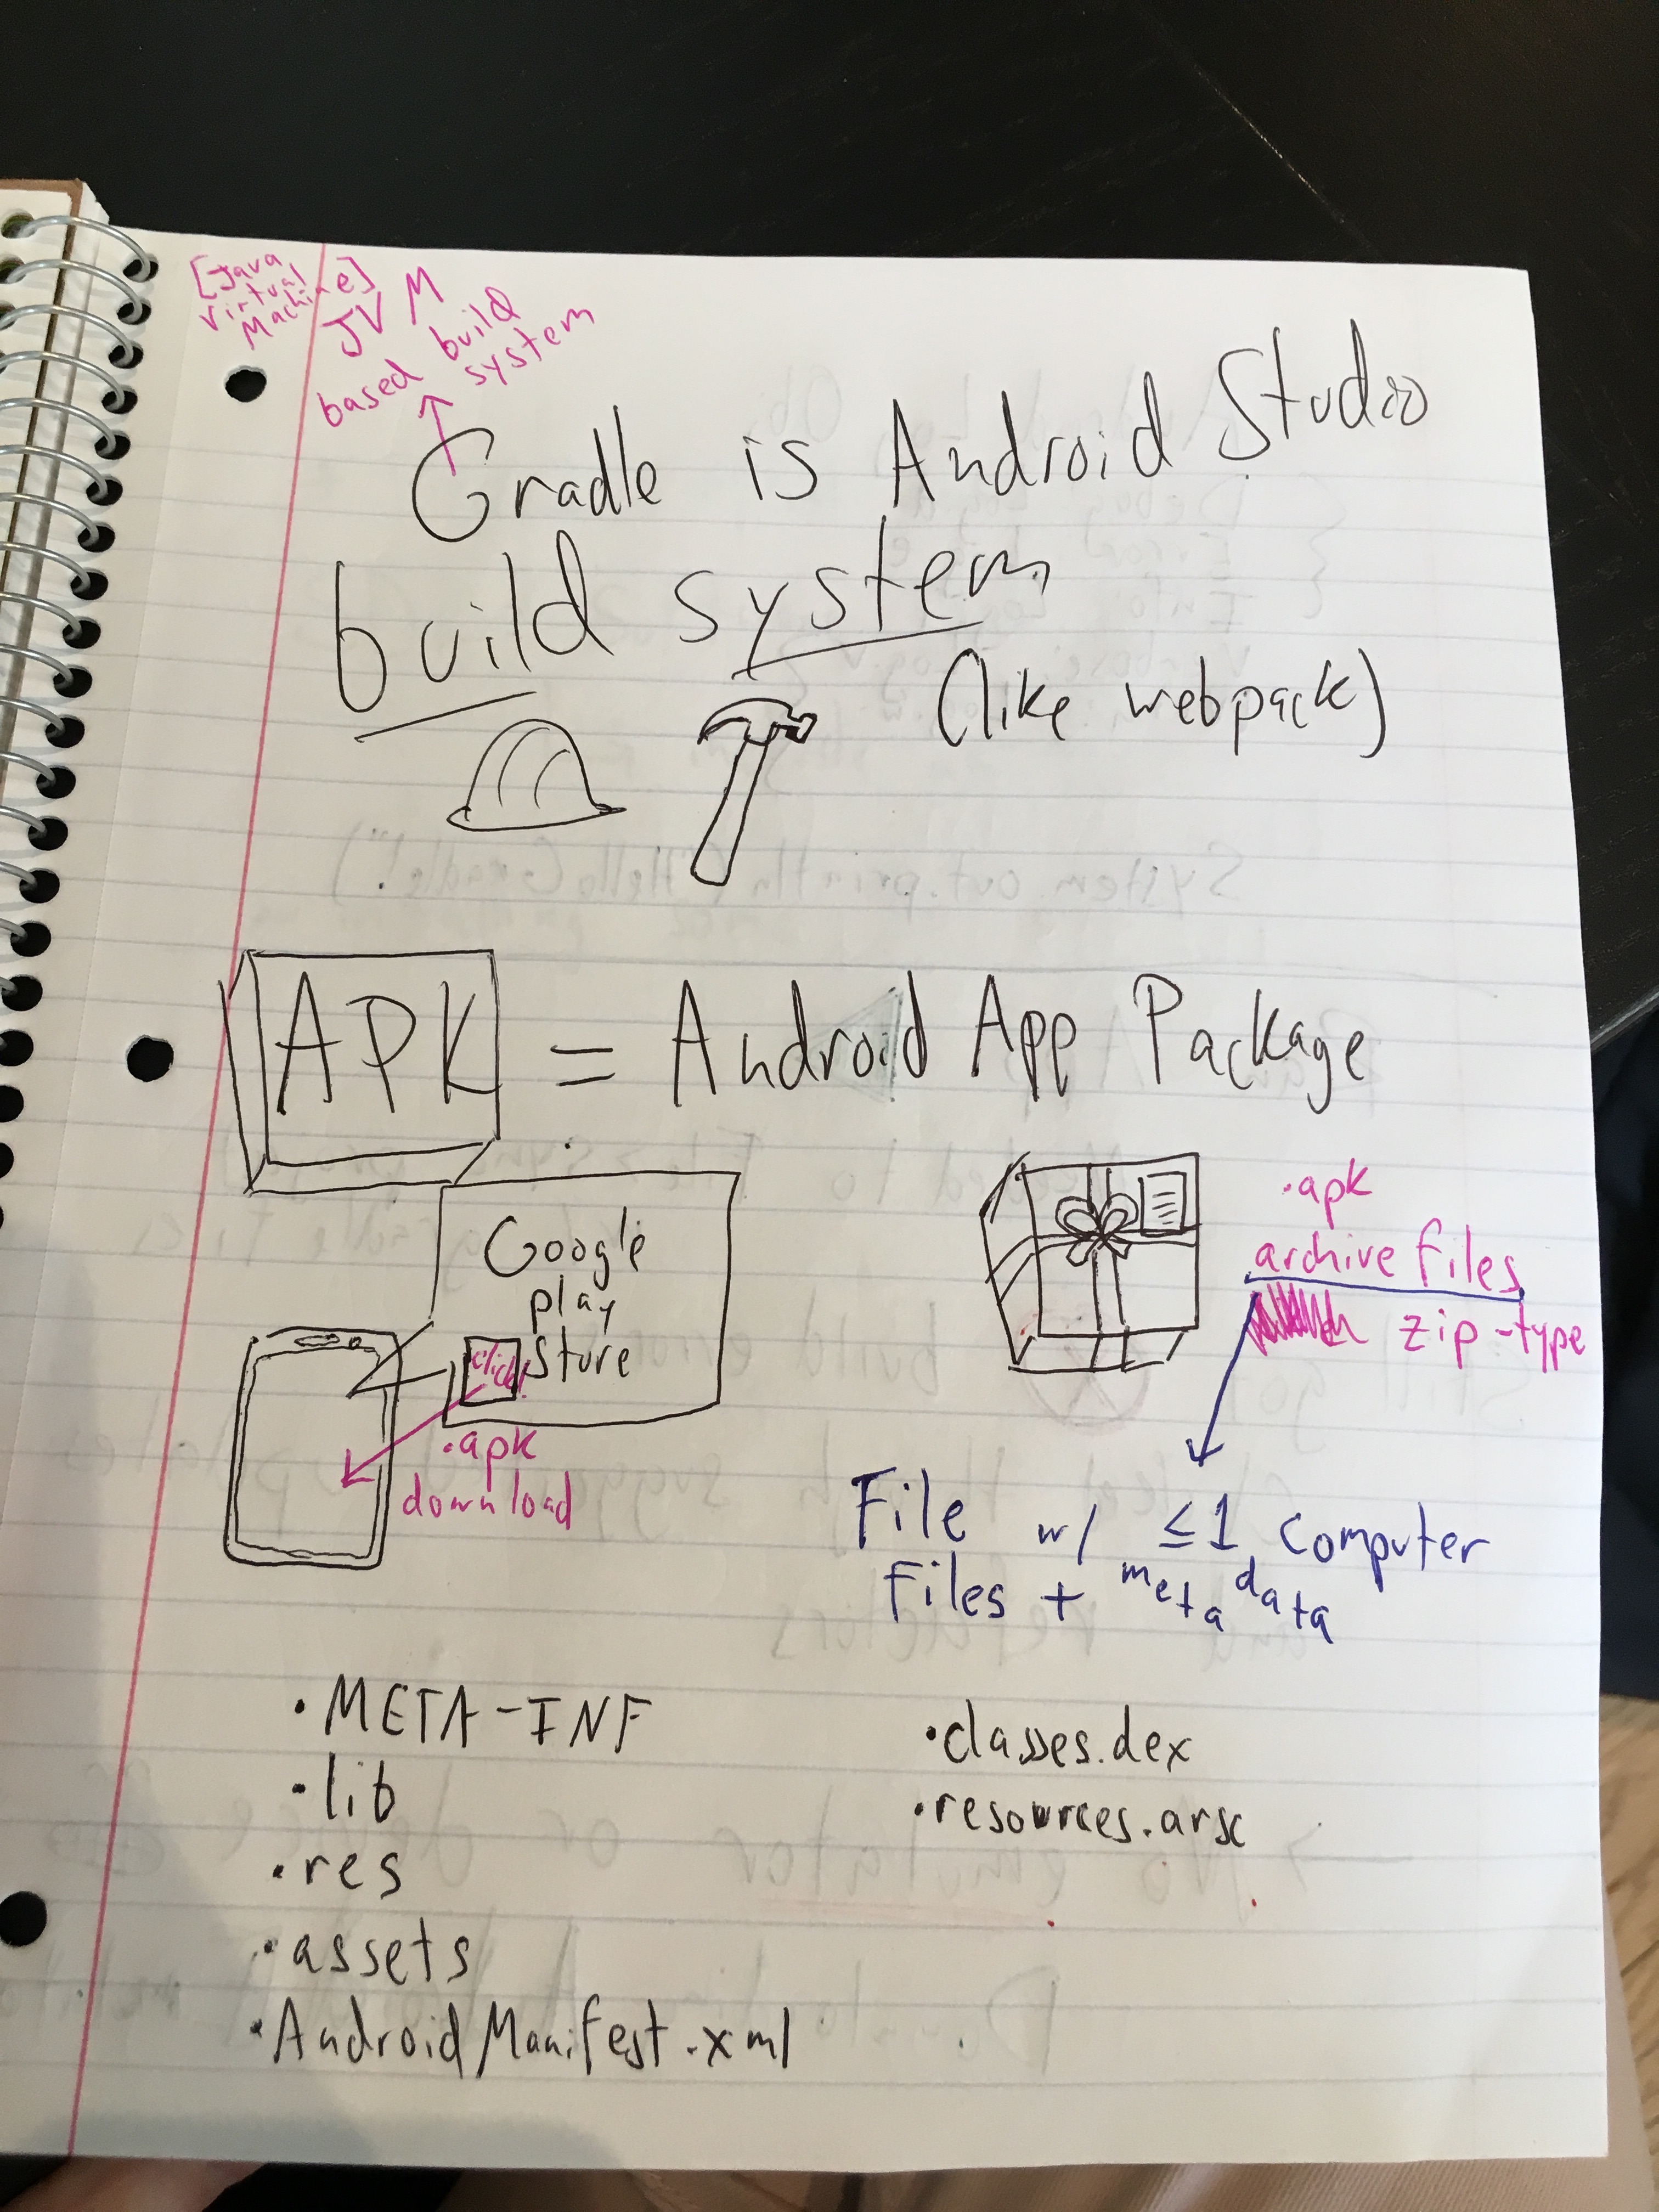 [Java
Virtual
Machine]
JVM
based build
system
Gradle is Android Studio
build system
(like webpack)
APK = Android App Package
Google
play
Store
click!
.apk
download
.apk
archive files
zip-type
File w/ ≤1 computer
files + metadata
• META-INF
• lib
• res
• assets
• AndroidManifest.xml
• classes.dex
• resources.arsc